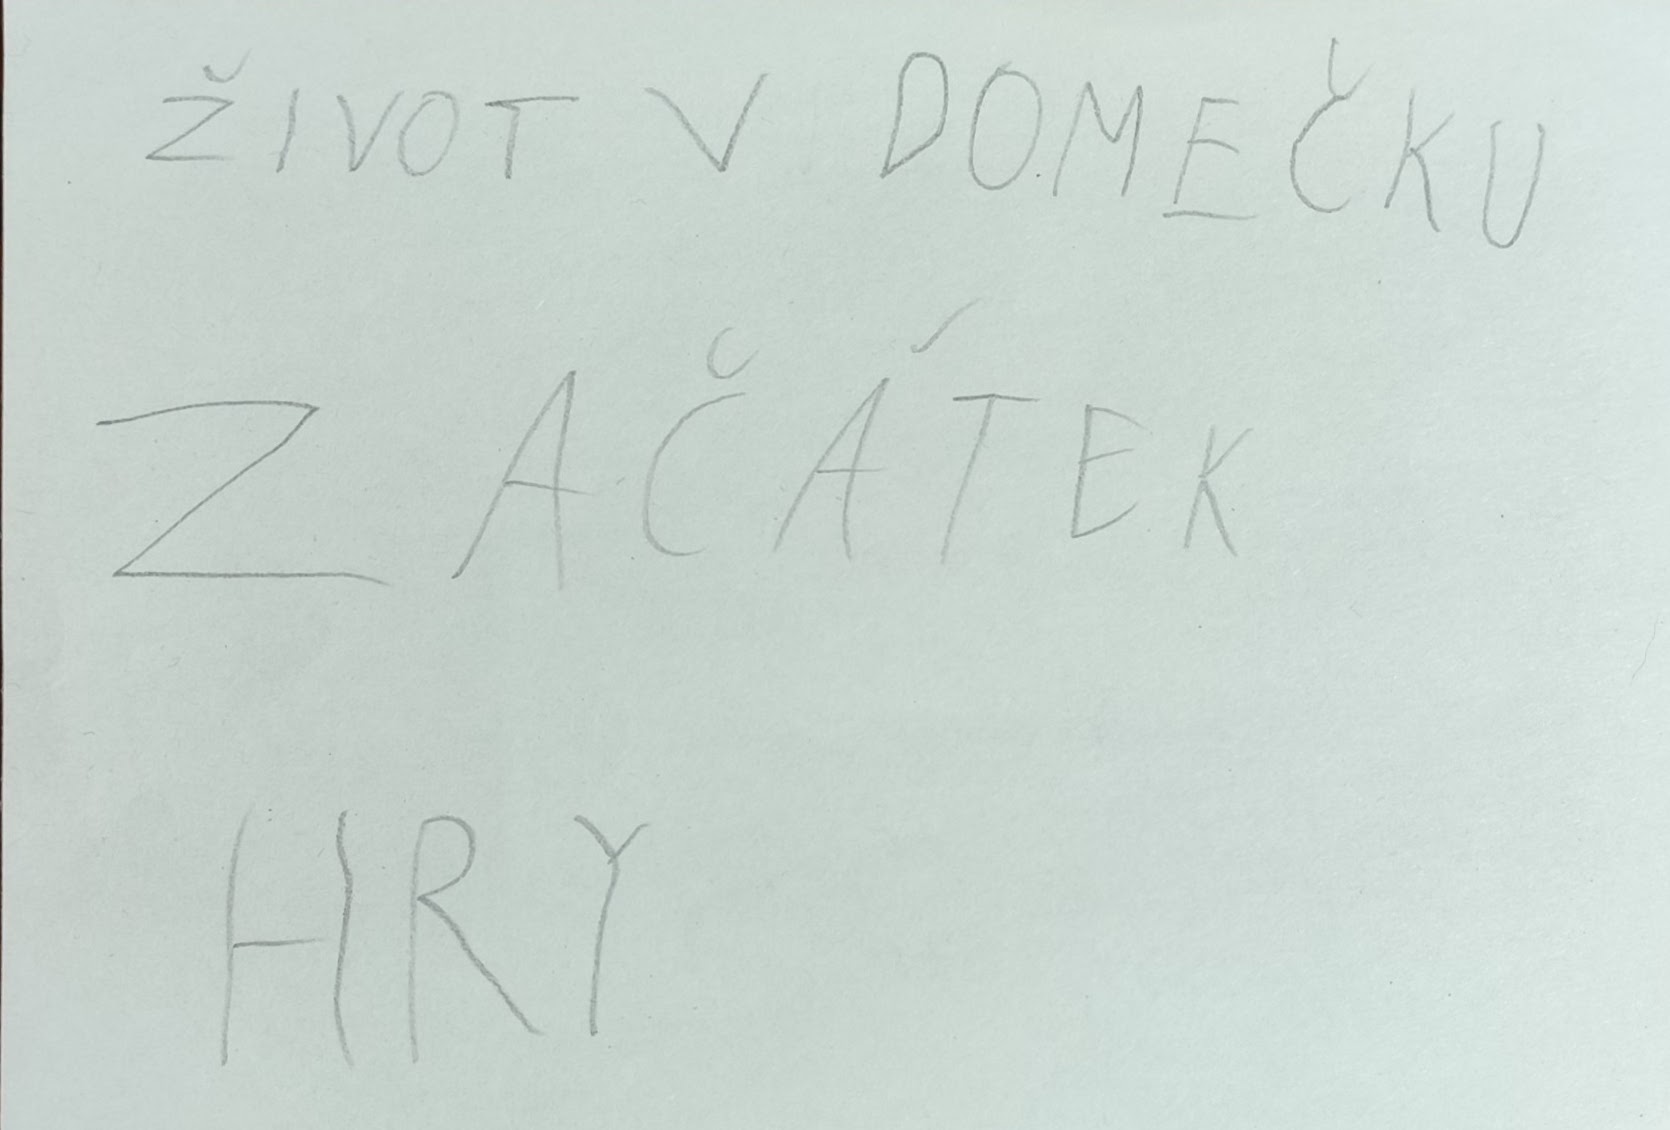 ŽIVOT V DOMEČKU
ZAČÁTEK
HRY